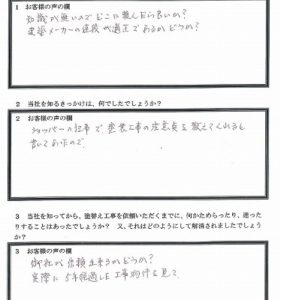 1　お客様の声の欄
知識が無いのでどこに頼んだら良いか？
塗装メーカーの値段が適正であるかどうか？
2　当社を知るきっかけは、何でしたでしょうか？
2　お客様の声の欄
ショッパーの仕事で塗装工事の注意点を教えてくれると
書いてあったので
3　当社を知ってから、塗替え工事を依頼いただくまでに、何かためらったり、迷った
りすることはあったでしょうか？　又、それはどのようにして解消されましたでしょう
か？
3　お客様の声の欄
御社が信頼出来るかどうか？
実際に5年経過した工事物件を見て、